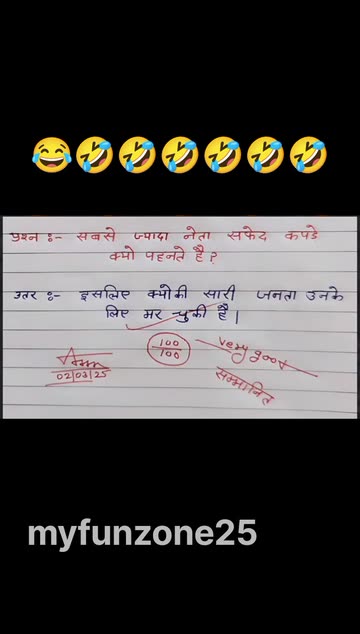 प्रश्न :- सबसे ज्यादा नेता सफेद कपडे
क्यो पहनते है ?
उतर :- इसलिए क्योकी सारी जनता उनके
लिए मर चुकी है |
100
100
very good
02/03/25
सम्मानित
myfunzone25